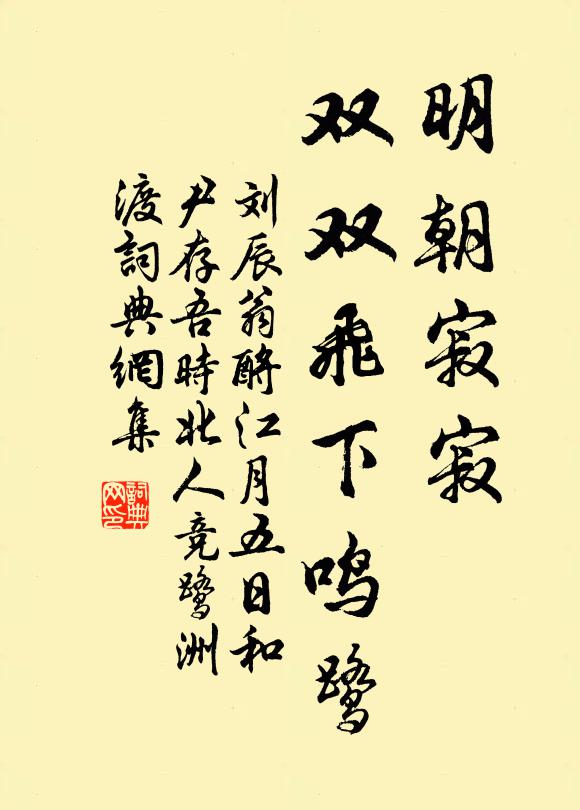 明朝寂寂
双双飛下鸣鹭
刘辰翁酹江月五日和
尹存吾時北人竞鹭洲
渡詞典網集
詞典网印